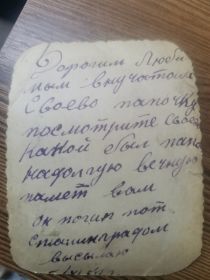 Дорогим Люби
мым внучатом
Своево папочку
посмотрите своево
какой был папа
надолгую вечную
памет вам
он погиб пот
сталинградом
высылаю